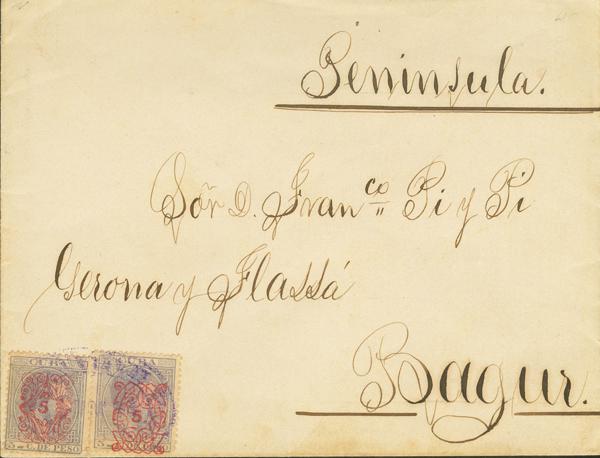 Península.
Sör D. Franco Pi y Pi
Gerona y Flassá
Bagur.
CUBA CUBA
5 5
5 C. DE PESO 5